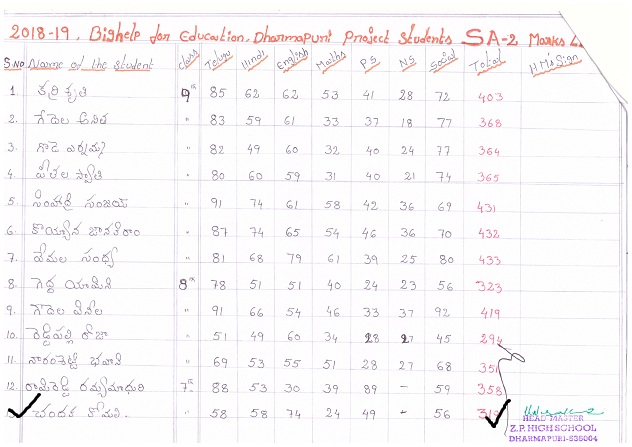 2018-19, Bighelp for Education, Dharmapuri Project Students SA-2 Marks
S.No Name of the Student class Telugu Hindi English Maths P.S N.S Social Total H.M's Sign
1. కర్రి కృతి 9th 85 62 62 53 41 28 72 403
2. గేదెల అనిత " 83 59 61 33 37 18 77 368
3. గౌడె ఎర్నమ్మ " 82 49 60 32 40 24 77 364
4. పీతల స్వాతి " 80 60 59 31 40 21 74 365
5. సింహాద్రి సంజయ్ " 91 74 61 58 42 36 69 431
6. కొయ్యాన జానకిరాం " 87 74 65 54 46 36 70 432
7. వేమల సంధ్య " 81 68 79 61 39 25 80 433
8. గెద్ద యామిని 8th 78 51 51 40 24 23 56 323
9. గౌదెల వినీల " 91 66 54 46 33 37 92 419
10. రెడ్డిపల్లి రోజా " 51 49 60 34 28 27 45 294
11. నారంశెట్టి భవాని " 69 53 55 51 28 27 68 351
12. రామిరెడ్డి రమ్యమాధురి 7th 88 53 30 39 89 - 59 358
చందక కోమలి. " 58 58 74 24 49 - 56 319
HEAD MASTER
Z.P. HIGH SCHOOL
DHARMAPURI-535004